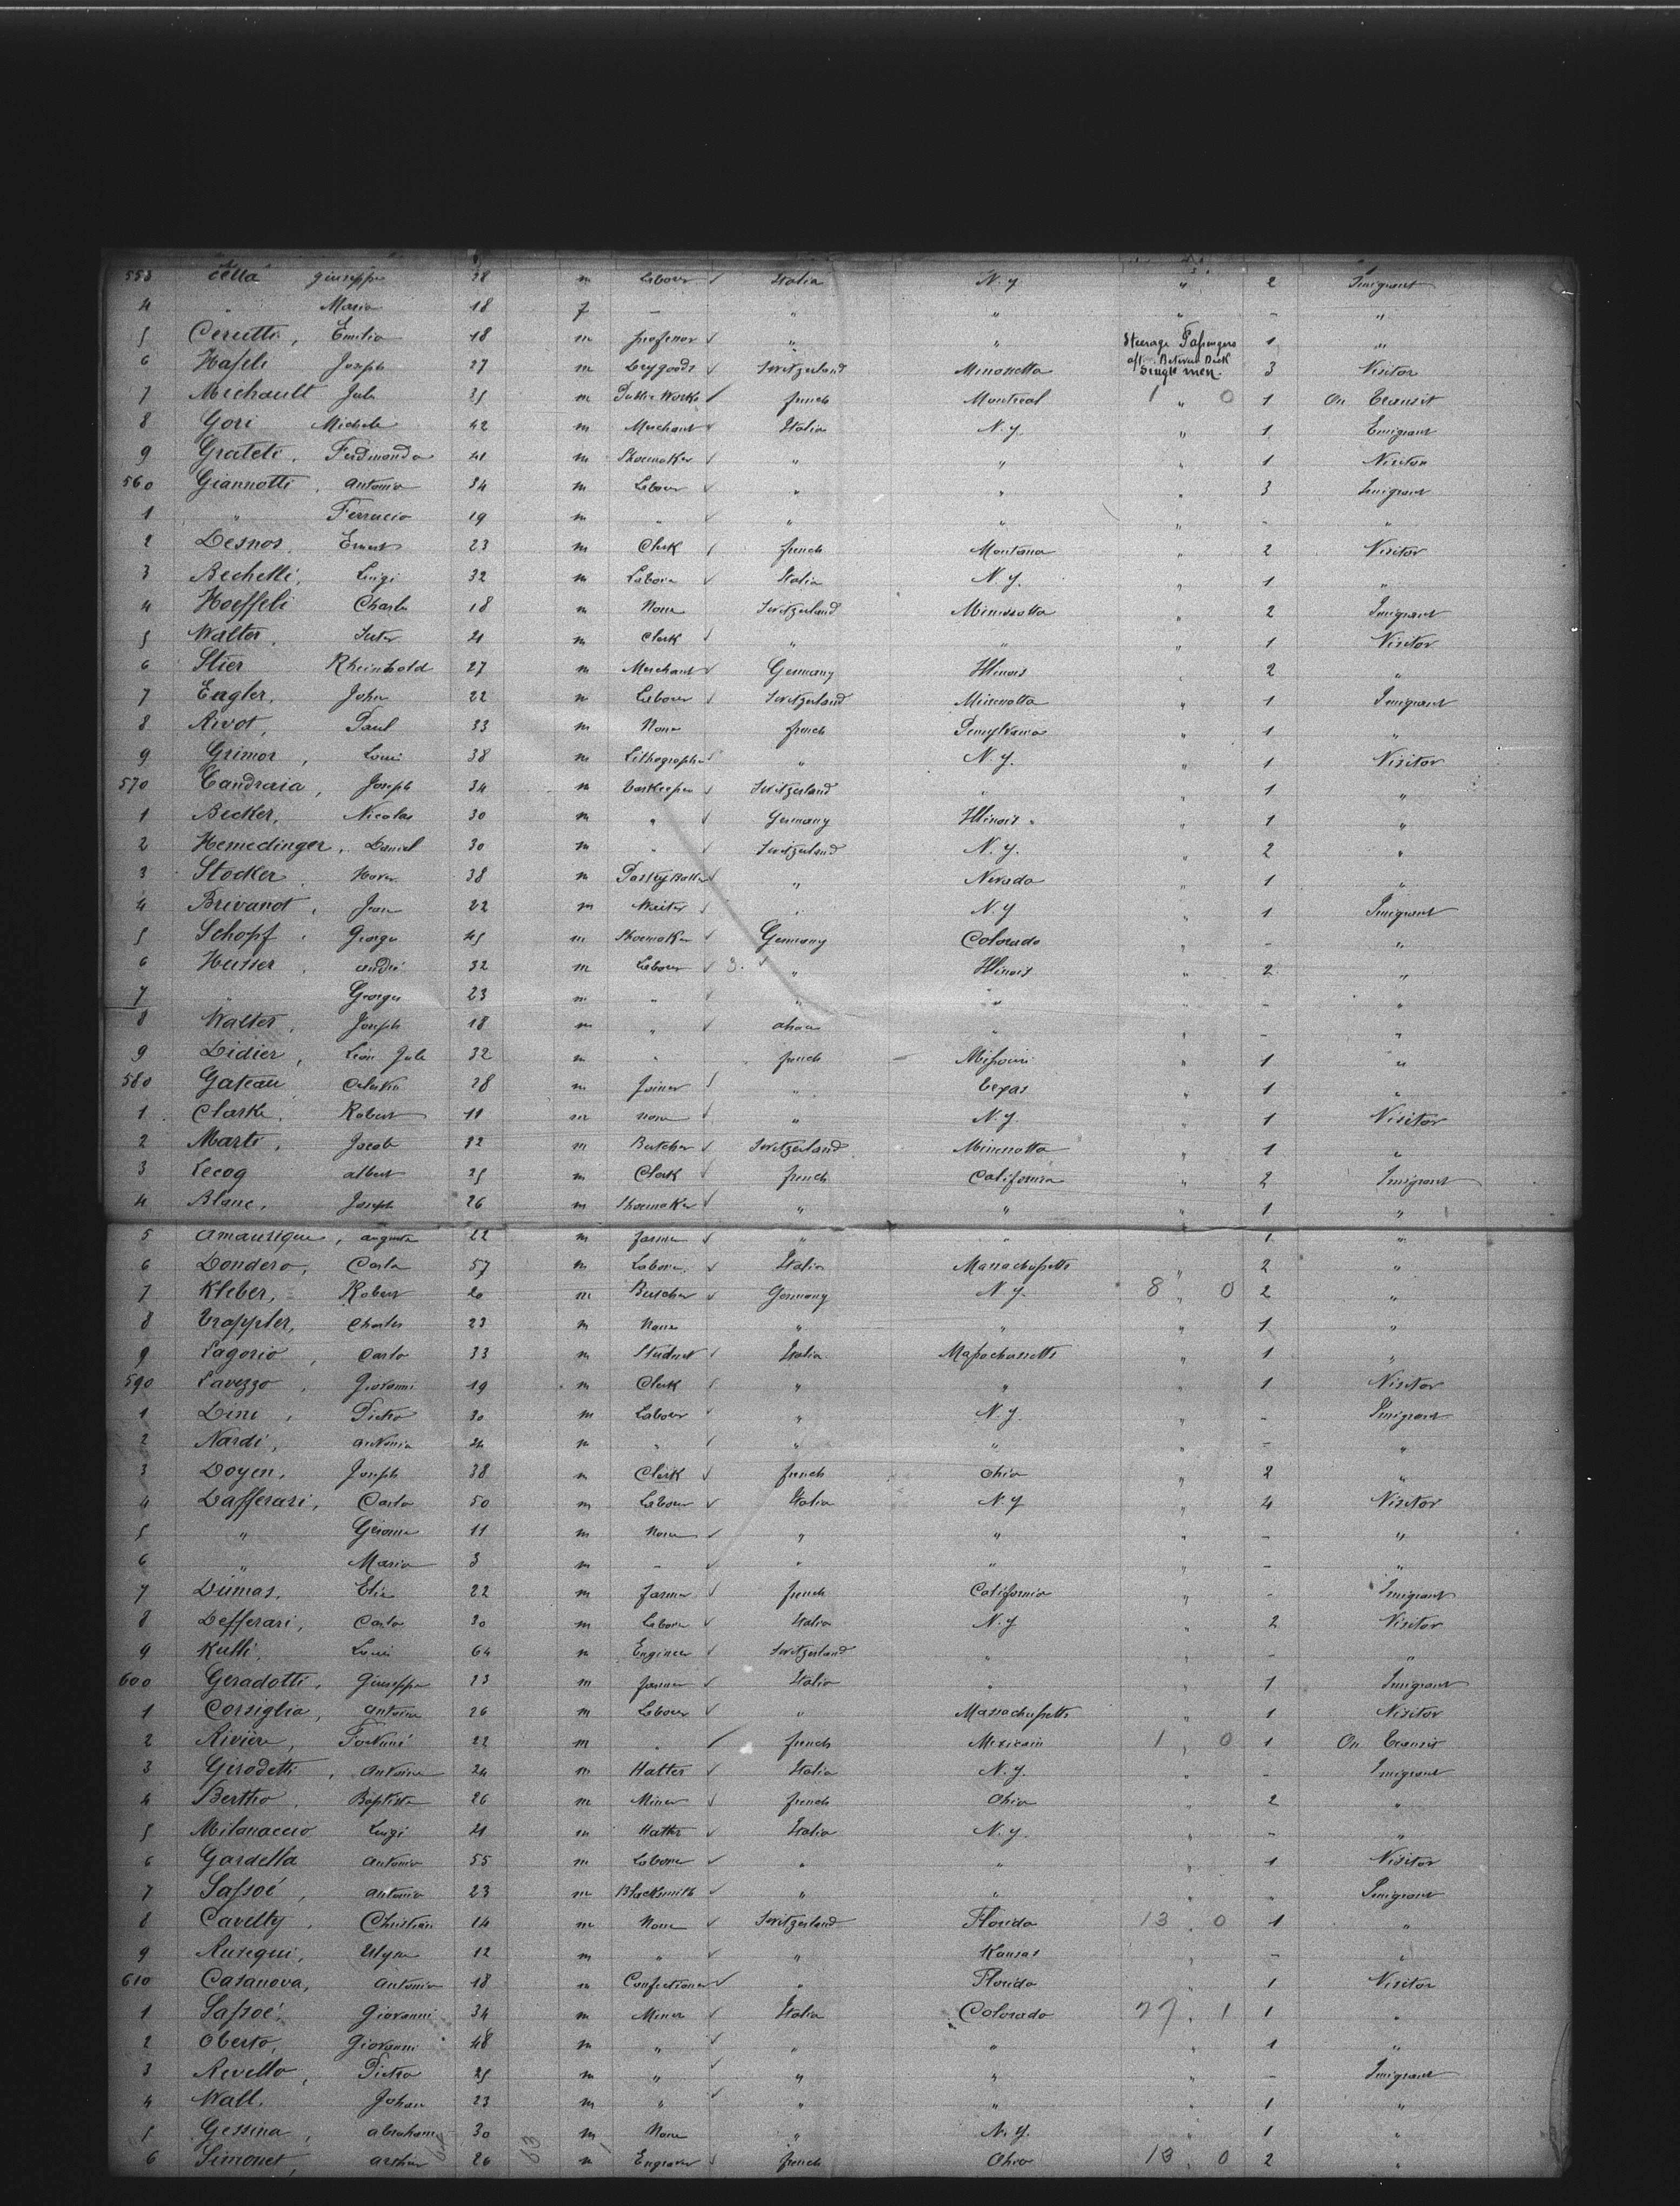 553 Cella Giuseppe 38 m Labour ✓ Italia N.Y. " 2 Imigrant
4 " Maria 18 f - " " " - "
5 Cerutti, Emilio 18 m professor ✓ " " Steerage Passengers 1 "
6 Hafeli Joseph 27 m Drygoods ✓ Switzerland Minossotta aft. Between Deck Single men. 3 Visitor
7 Michault Jule 35 m Public Works ✓ french Montreal 1 " 0 1 On Transit
8 Gori Michele 42 m Merchant ✓ Italia N.Y. " 1 Emigrant
9 Grateti, Ferdinando 41 m Shoemaker ✓ " " " 1 Visitor
560 Giannotti, Antonio 34 m Labour ✓ " " " 3 Imigrant
1 " Ferrucio 19 m " ✓ " " " - "
2 Desnos, Ernest 23 m Clerk ✓ french Montana " 2 Visitor
3 Bechelli, Luigi 32 m Labour ✓ Italia N.Y. " 1 "
4 Hoeffeli Charles 18 m None Switzerland Minessotta " 2 Imigrant
5 Walter, Suter 21 m Clerk ✓ " " " 1 Visitor
6 Stier Rheinhold 27 m Merchant ✓ Germany Illinois " 2 "
7 Engler, John 22 m Labour ✓ Switzerland Minesotta " 1 Imigrant
8 Rivot, Paul 33 m None french Pensylvania " 1 "
9 Grimor, Louis 38 m Lithographer ✓ " N.Y. " 1 Visitor
570 Candraia, Joseph 34 m barkeeper ✓ Switzerland " " 1 "
1 Becker, Nicolas 30 m " ✓ Germany Illinois " 1 "
2 Hemedinger, Daniel 30 m " ✓ Switzerland N.Y. " 2 "
3 Stocker, 38 m ✓ " Nevada " 1 "
4 Brivanot, Jean 22 m Waiter ✓ " N.Y " 1 Imigrant
5 Schopf, George 45 m Shoemaker ✓ Germany Colorado " - "
6 Husser, André 32 m Labour ✓ 3. ✓ " Illinois " 2 "
7 " Georges 23 m " ✓ " " " - "
8 Walter, Joseph 18 m " ✓ " " - "
9 Didier, Léon Jule 32 m " french Missouri " 1 "
580 Gateau 28 m Joiner ✓ " Texas " 1 "
1 Clarke, Robert 11 m none ✓ " N.Y. " 1 Visitor
2 Marti, Jacob 32 m Butcher ✓ Switzerland Minesotta " 1 "
3 Lecoq albert 25 m Clerk ✓ french California " 2 Imigrant
4 Blanc, Joseph 26 m Shoemaker ✓ " " " 1 "
5 Amaurique, auguste 22 m farmer ✓ " " 1 "
6 Dondero, Carlo 57 m Labour ✓ Italia Massachussetts " 2 "
7 Kleber, Robert 20 m Butcher ✓ Germany N.Y. 8 " 0 2 "
8 Trappler, Charles 23 m None " " " 1 "
9 Lagorio, Carlo 33 m Student ✓ Italia Massachussetts " 1 "
590 Lavezzo, Giovanni 19 m Clerk ✓ " " 1 Visitor
1 Dini, Pietro 30 m Labour ✓ " N.Y. " - Imigrant
2 Nardi, antonio 24 m " ✓ " " " - "
3 Doyen, Joseph 38 m Clerk ✓ french Ohio " 2 "
4 Dafferari, Carlo 50 m Labour ✓ Italia N.Y " 4 Visitor
5 " Gerome 11 m None ✓ " " " - "
6 " Maria 3 m - ✓ " " " - "
7 Dumas, Elie 22 m farmer ✓ french California " - Imigrant
8 Defferari, Carlo 30 m Labour ✓ Italia N.Y " 2 Visitor
9 Kulli, Louis 64 m Engineer ✓ Switzerland " " - "
600 Geradotti, Giuseppe 23 m farmer ✓ Italia " " 1 Imigrant
1 Corsiglia, antoine 26 m Labour ✓ " Massachussetts " 1 Visitor
2 Rivière, Fortuné 22 m " ✓ french Mexicain 1 " 0 1 On Transit
3 Girodetti, Antoine 24 m Hatter ✓ Italia N.Y. " - Imigrant
4 Bertho, Baptiste 26 m Miner ✓ french Ohio " 2 "
5 Milanaccio Luigi 21 m Hatter ✓ Italia N.Y. " - "
6 Gardella antonio 55 m Labour ✓ " " " 1 Visitor
7 Sassoé, antonio 23 m Blacksmith ✓ " " " - Imigrant
8 Cavelty, Christian 14 m None ✓ Switzerland Florida 13 " 0 1 "
9 Rusequi, Ulysse 12 m " ✓ " Kansas " - "
610 Casanova, antonio 18 m Confectioner ✓ " Florida " 1 Visitor
1 Sassoé, Giovanni 34 m Miner ✓ Italia Colorado 27 " 1 1 "
2 Oberto, Giovanni 48 m " ✓ " " " 1 "
3 Revello, Pietro 25 m " ✓ " " " - Imigrant
4 Wall, Johan 23 m " ✓ " " " 1 "
5 Gessina, abraham 30 m None " N.Y. " 1 "
6 Simonet, arthur 26 63 m Engraver ✓ french Ohio 13 " 0 2 "